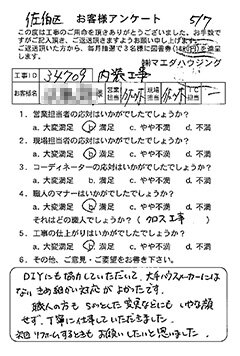 佐伯区 お客様アンケート 5/7
この度は工事のご用命を頂きありがとうございました。お手数で
すがご記入頂き、ご返送頂きますようお願い申し上げます。
ご返送頂いた方から、毎月抽選で3名様に図書券
㈱マエダハウジング
工事ID 34709 内装工事
お客様名 営業担当 現場担当
1. 営業担当者の応対はいかがでしたでしょうか?
a. 大変満足 b. 満足 c. やや不満 d. 不満
2. 現場担当者の応対はいかがでしたでしょうか?
a. 大変満足 b. 満足 c. やや不満 d. 不満
3. コーディネーターの応対はいかがでしたでしょうか?
a. 大変満足 b. 満足 c. やや不満 d. 不満
4. 職人のマナーはいかがでしたでしょうか?
a. 大変満足 b. 満足 c. やや不満 d. 不満
それはどの職人でしょうか? (クロス工事)
5. 工事の仕上がりはいかがでしたでしょうか?
a. 大変満足 b. 満足 c. やや不満 d. 不満
6. その他、ご意見・ご要望をお書き下さい。
DIYにも協力していただいて、大手ハウスメーカーには
ない、きめ細かい対応がよかったです。
職人の方も ちょっとした変更などにも いやな顔
せず、丁寧に仕事していただきました。
次回リフォームするときも お願いしたいと思いました。